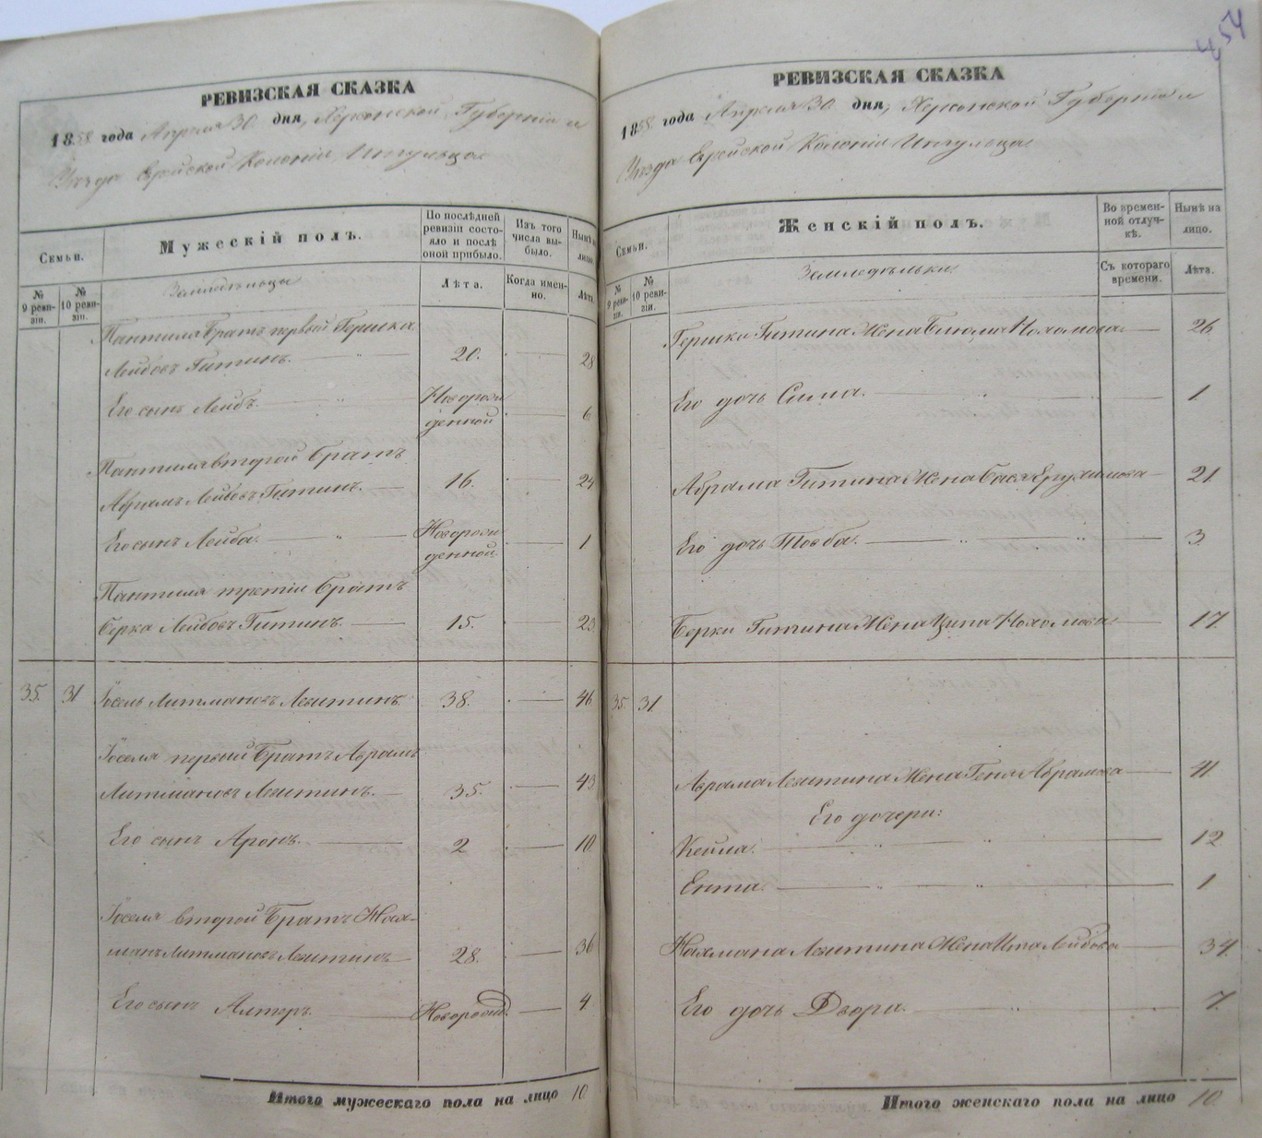 454
РЕВИЗСКАЯ СКАЗКА
1858 года Апреля 30 дня, Херсонской Губерніи и
Уѣзда Еврейской Колоніи Ингульца
Семьи.
Мужескій полъ.
По послѣдней ревизіи состояло и послѣ оной прибыло.
Изъ того числа выбыло.
Нынѣ на лицо.
№ 9 ревизіи.
№ 10 ревизіи.
Земледѣльцы
Лѣта.
Когда именно.
Лѣта.
Пантиля Братъ первый Гершка
Лейбовъ Гитинъ. 20. 28
Его сынъ Лейбъ. Новорожденной 6
Пантиля второй Братъ
Абрамъ Лейбовъ Гитинъ. 16. 24
Его сынъ Лейба. Новорожденной 1
Пантиля третій Братъ
Берка Лейбовъ Гитинъ. 15. 23
35. 31 Іосель Литмановъ Левитинъ. 38. 46
Іоселя первый Братъ Абрамъ
Литмановъ Левитинъ. 35. 43
Его сынъ Аронъ. 2 10
Іоселя второй Братъ Нахманъ Литмановъ Левитинъ 28. 36
Его сынъ Алтеръ. Новорожд. 4
Итого мужескаго пола на лицо 10
РЕВИЗСКАЯ СКАЗКА
1858 года Апреля 30 дня, Херсонской Губерніи и
Уѣзда Еврейской Колоніи Ингульца
Семьи.
Женскій полъ.
Во временной отлучкѣ.
Нынѣ на лицо.
№ 9 ревизіи.
№ 10 ревизіи.
Земледѣльки
Съ котораго времени.
Лѣта.
Гершки Гитина Жена 26
Его дочь Сима. 1
Абрама Гитина Жена Бася 21
Его дочь Тоеба. 3
Берки Гитина Жена Ципа 17
35. 31
Абрама Левитина Жена Геня Абрамова 41
Его дочери:
Кейла. 12
Ента. 1
Нахмана Левитина Жена Ита Лейбова 34.
Его дочь Двора. 7.
Итого женскаго пола на лицо 10.